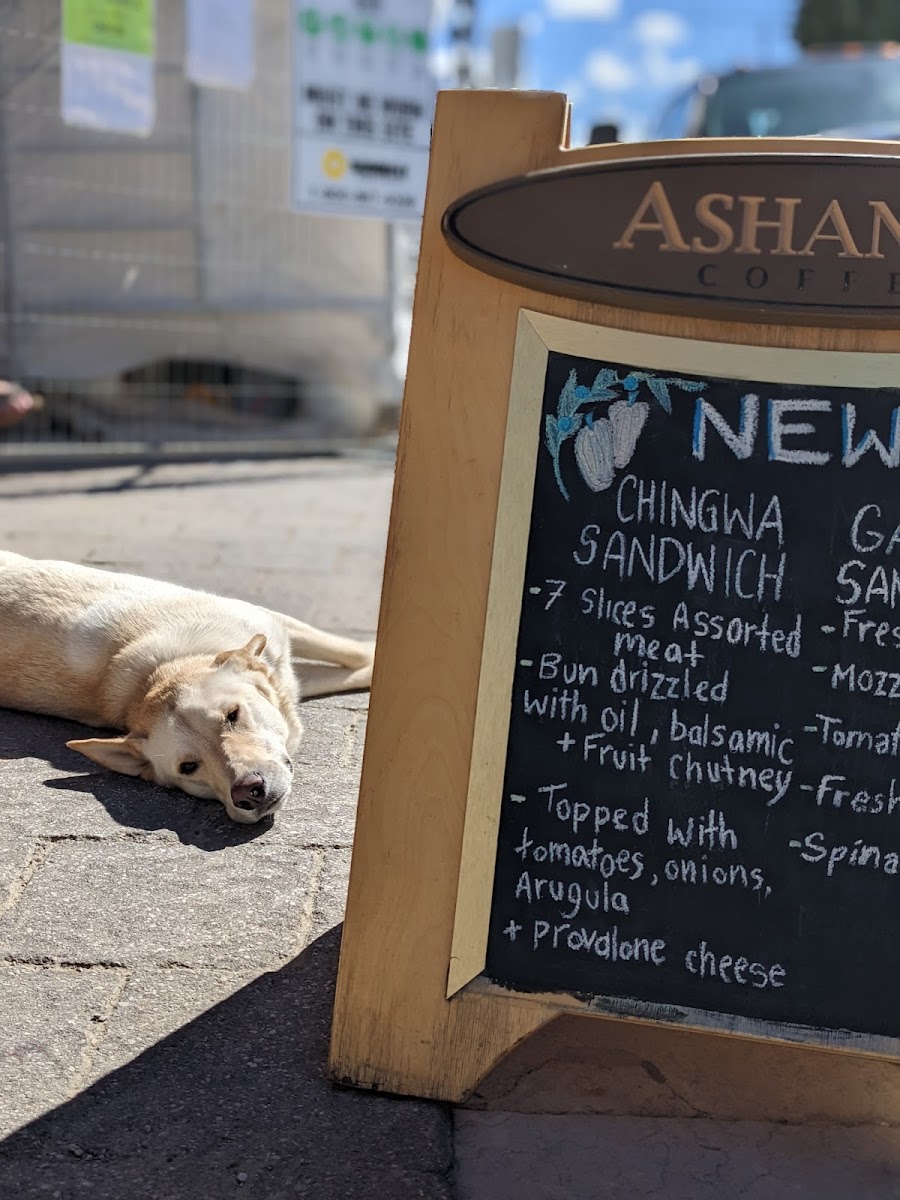 ASHAN
COFFE
NEW
CHINGWA
SANDWICH
-7 slices Assorted
meat
-Bun drizzled
with oil, balsamic
+ Fruit chutney
- Topped with
tomatoes, onions,
Arugula
+ provalone cheese
GA
SAN
-Fres
-Mozz
-Tomat
-Fresh
-Spina
MUST BE WORN
ON THIS SITE